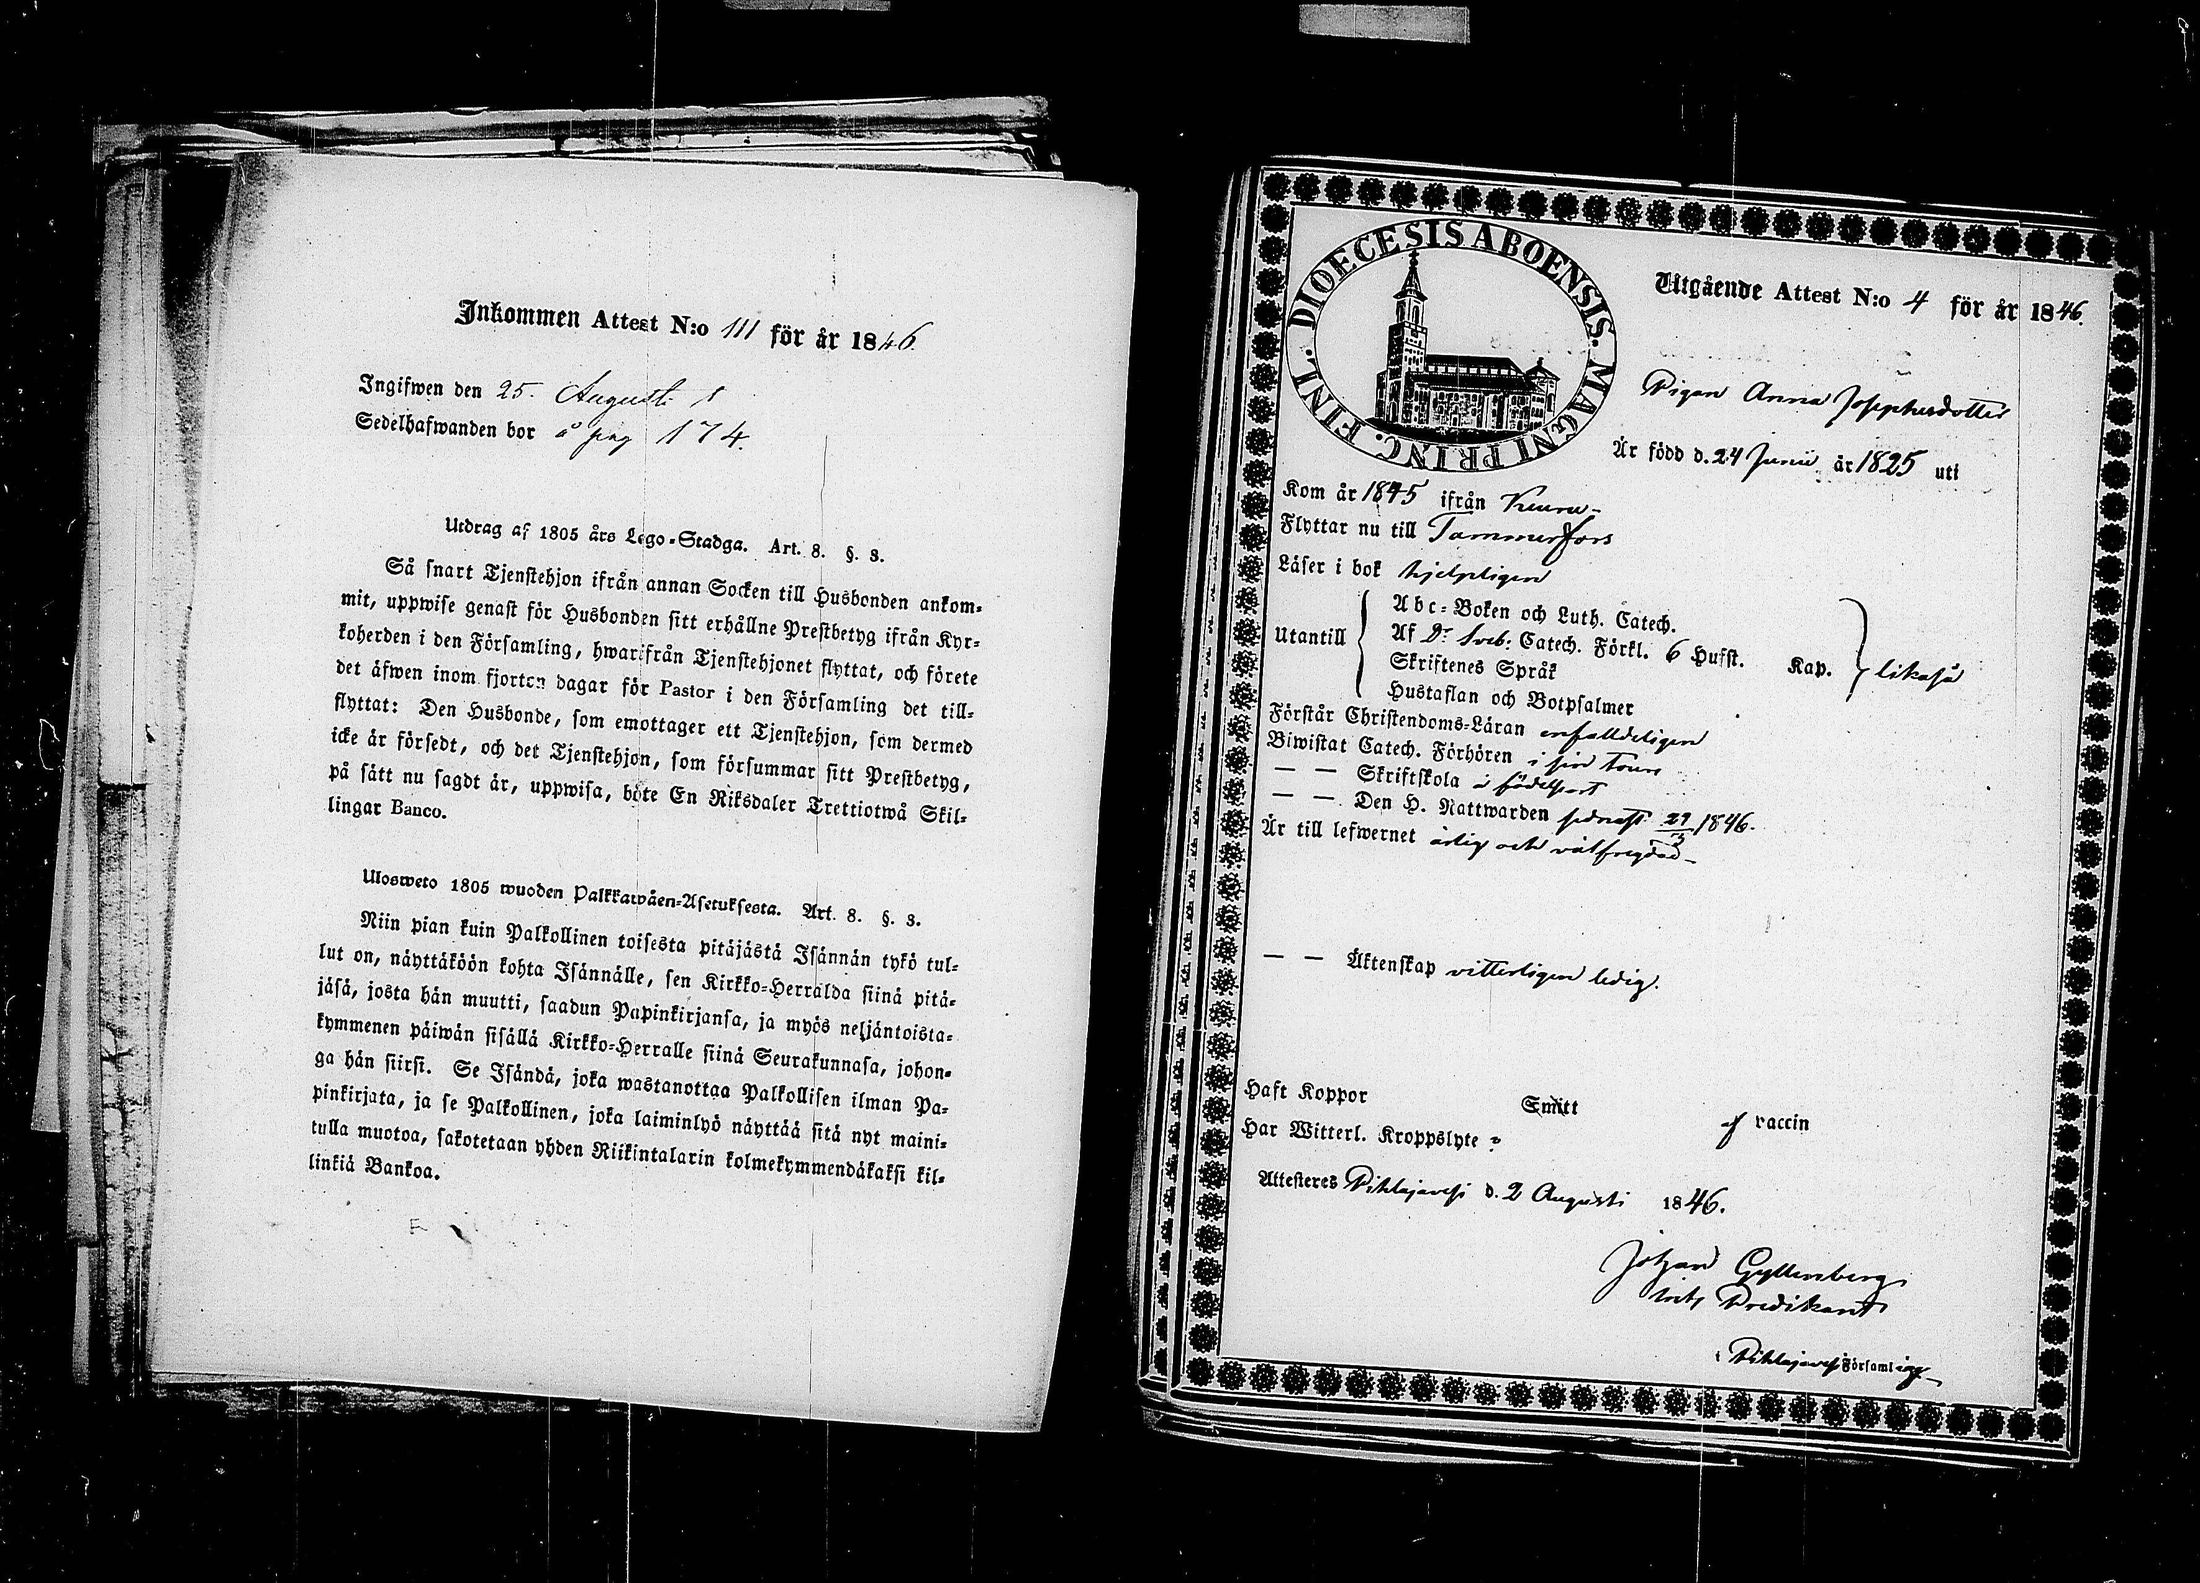 Inkommen Attest N:o 111 för år 1846.
Ingifwen den 25. Augusti
Sedelhafwanden bor å pag 174.
Utdrag af 1805 års Lego-Stadga. Art. 8. §. 3.
Så snart Tjenstehjon ifrån annan Socken till Husbonden ankom-
mit, uppwise genast för Husbonden sitt erhållne Prestbetyg ifrån Kyr-
koherden i den Församling, hwarifrån Tjenstehjonet flyttat, och förete
det äfwen inom fjorton dagar för Pastor i den Församling det till-
flyttat: Den Husbonde, som emottager ett Tjenstehjon, som dermed
icke är försedt, och det Tjenstehjon, som försummar sitt Prestbetyg,
på sätt nu sagdt är, uppwisa, böte En Riksdaler Trettiotwå Skil-
lingar Banco.
Ulosweto 1805 wuoden Palkkawäen-Asetuksesta. Art. 8. §. 3.
Niin pian kuin Palkollinen toisesta pitäjästä Isännän tykö tul-
lut on, näyttäköön kohta Isännälle, sen Kirkko-Herralda siinä pitä-
jäsä, josta hän muutti, saadun Papinkirjansa, ja myös neljäntoista-
kymmenen päiwän sisällä Kirkko-Herralle siinä Seurakunnasa, johon-
ga hän siirsi. Se Isändä, joka wastanottaa Palkollisen ilman Pa-
pinkirjata, ja se Palkollinen, joka laiminlyö näyttää sitä nyt maini-
tulla muotoa, sakotetaan yhden Riikintalarin kolmekymmendäkaksi kil-
linkiä Bankoa.
DIOECESIS ABOENSIS. MAGNI PRINC. FINL.
Utgående Attest N:o 4 för år 1846.
Pigan Anna Josephsdotter
Är född d. 24 Junii år 1825 uti
Kom år 1845 ifrån Keuru
Flyttar nu till Tammerfors
Läser i bok hjelpligen
Utantill
Abc-Boken och Luth. Catech.
Af Dr Sveb. Catech. Förkl. 6 Hufst. Kap.
Skriftenes Språk
Hustaflan och Botpsalmer
likaså
Förstår Christendoms-Läran enfalldeligen
Biwistat Catech. Förhören i sin tour
— — Skriftskola å födelsort
— — Den H. Nattwarden sednast 29/3 1846.
Är till lefwernet ärlig och välfregdad
— — Äktenskap vitterligen ledig.
Haft Koppor Smitt af vaccin
Har Witterl. Kroppslyte
Attesteres Pihlajavesi d. 2 Augusti 1846.
Johan Gyllenberg
Predikant
Pihlajavesi Församling